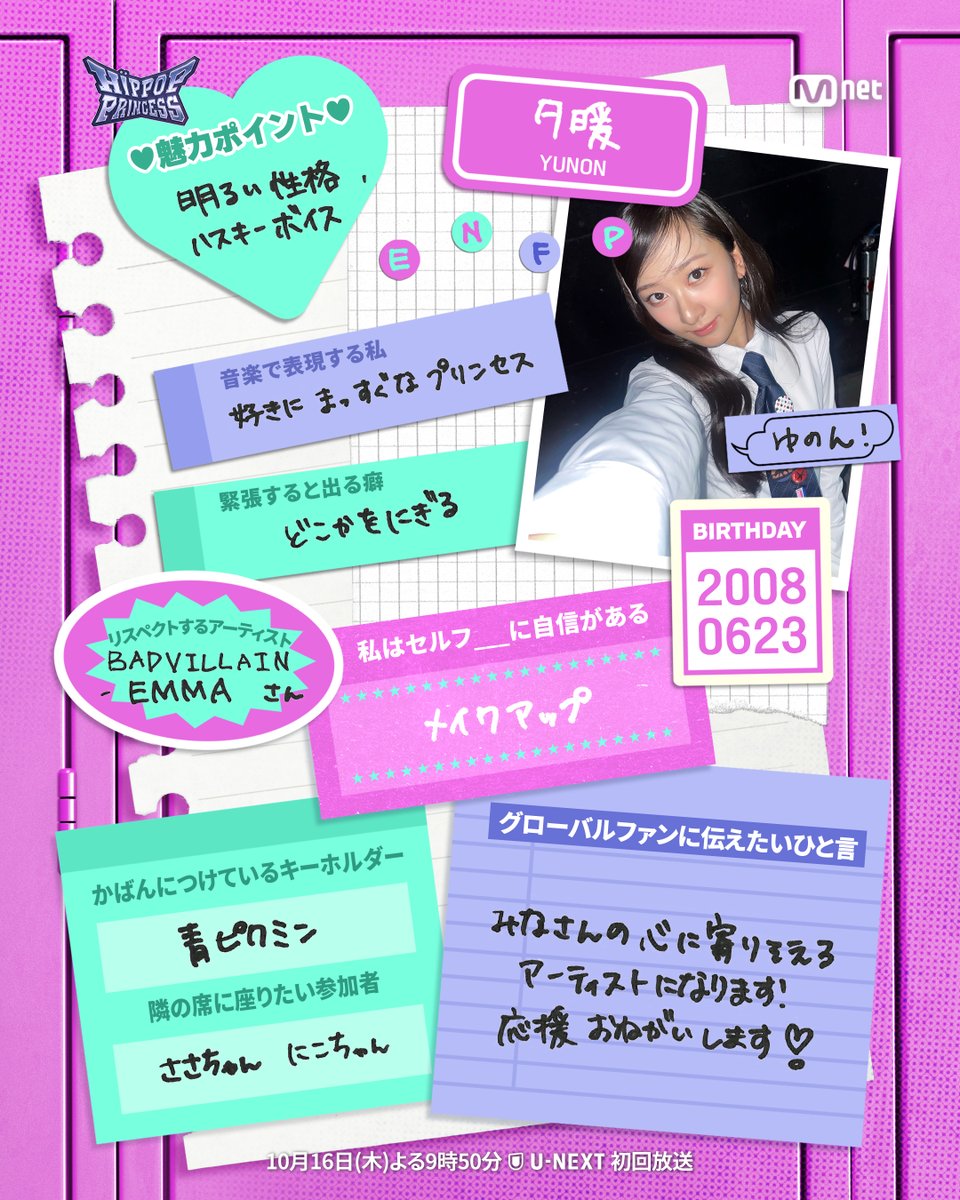 HIPPOP
PRINCESS
Mnet
♥魅力ポイント♥
明るい性格、
ハスキーボイス
月暖
YUNON
ENFP
音楽で表現する私
好きに まっすぐな プリンセス
ゆのん!
緊張すると出る癖
どこかをにぎる
BIRTHDAY
2008
0623
リスペクトするアーティスト
BADVILLAIN
- EMMA さん
私はセルフ__に自信がある
メイクアップ
かばんにつけているキーホルダー
青ピクミン
隣の席に座りたい参加者
ささちゃん にこちゃん
グローバルファンに伝えたいひと言
みなさんの心に寄りそえる
アーティストになります!
応援 おねがいします♡
10月16日(木)よる9時50分 U-NEXT 初回放送